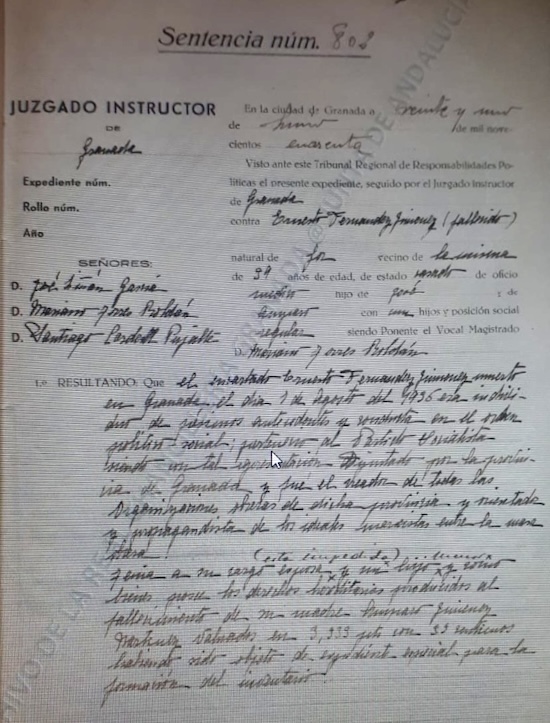 Sentencia núm. 802
JUZGADO INSTRUCTOR
DE
Granada
Expediente núm.
Rollo núm.
Año
SEÑORES:
D. José García
D. Mariano Torres Roldán
D. Santiago Cardell Pujalte
En la ciudad de Granada a veinte y uno
de de mil nove-
cientos cuarenta
Visto ante este Tribunal Regional de Responsabilidades Po-
líticas el presente expediente, seguido por el Juzgado Instructor
de Granada
contra Ernesto Fernandez Gimenez (fallecido)
natural de vecino de la misma
de 39 años de edad, de estado casado de oficio
médico hijo de José y de
Amparo con un hijos y posición social
regular siendo Ponente el Vocal Magistrado
D. Mariano Torres Roldán
1.º RESULTANDO: Que el encartado Ernesto Fernandez Gimenez muerto
en Granada el dia 1 de Agosto del 1936 era indivi-
duo de pésimos antecedentes y conducta en el orden
politico social; perteneció al Partido Socialista
siendo con tal representación Diputado por la provin-
cia de Granada y fue el creador de todas las
Organizaciones obreras de dicha provincia y
y propagandista de los ideales marxistas entre la masa
obrera.
(esta impedida)
Tenia a su cargo esposa y un hijo y como
bienes posee los derechos hereditarios producidos al
fallecimiento de su madre Amparo Gimenez
Martinez valuados en 3,333 pts con 33 centimos
habiendo sido objeto de expediente especial para la
formación del inventario.